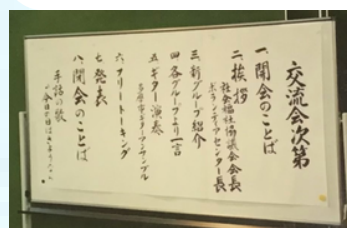 交流会次第
一、開会のことば
二、挨拶
社会福祉協議会会長
ボランティアセンター長
三、新グループ紹介
四、各グループより一言
五、ギター演奏
ギターアンサンブル
六、フリートーキング
七、発表
八、閉会のことば
手話の歌